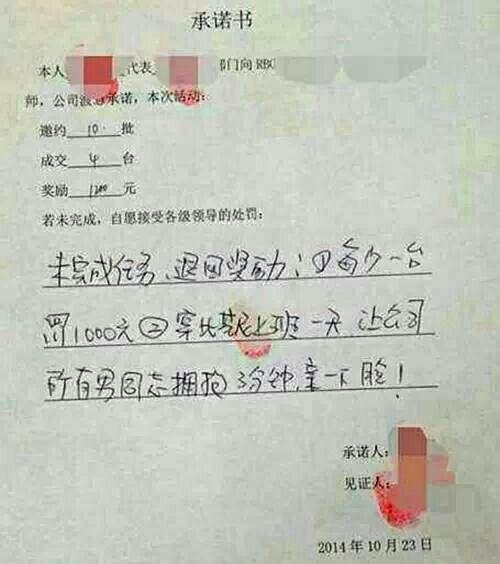 承诺书
本人 代表 部门向 RBC
师，公司 承诺，本次活动：
邀约 10 批
成交 4 台
奖励 1200 元
若未完成，自愿接受各级领导的处罚：
未完成任务、退回奖励；①每少一台
罚1000元②穿比基尼上班一天，让公司
所有男同志拥抱3分钟，亲一下脸！
承诺人：
见证人：
2014 年 10 月 23 日